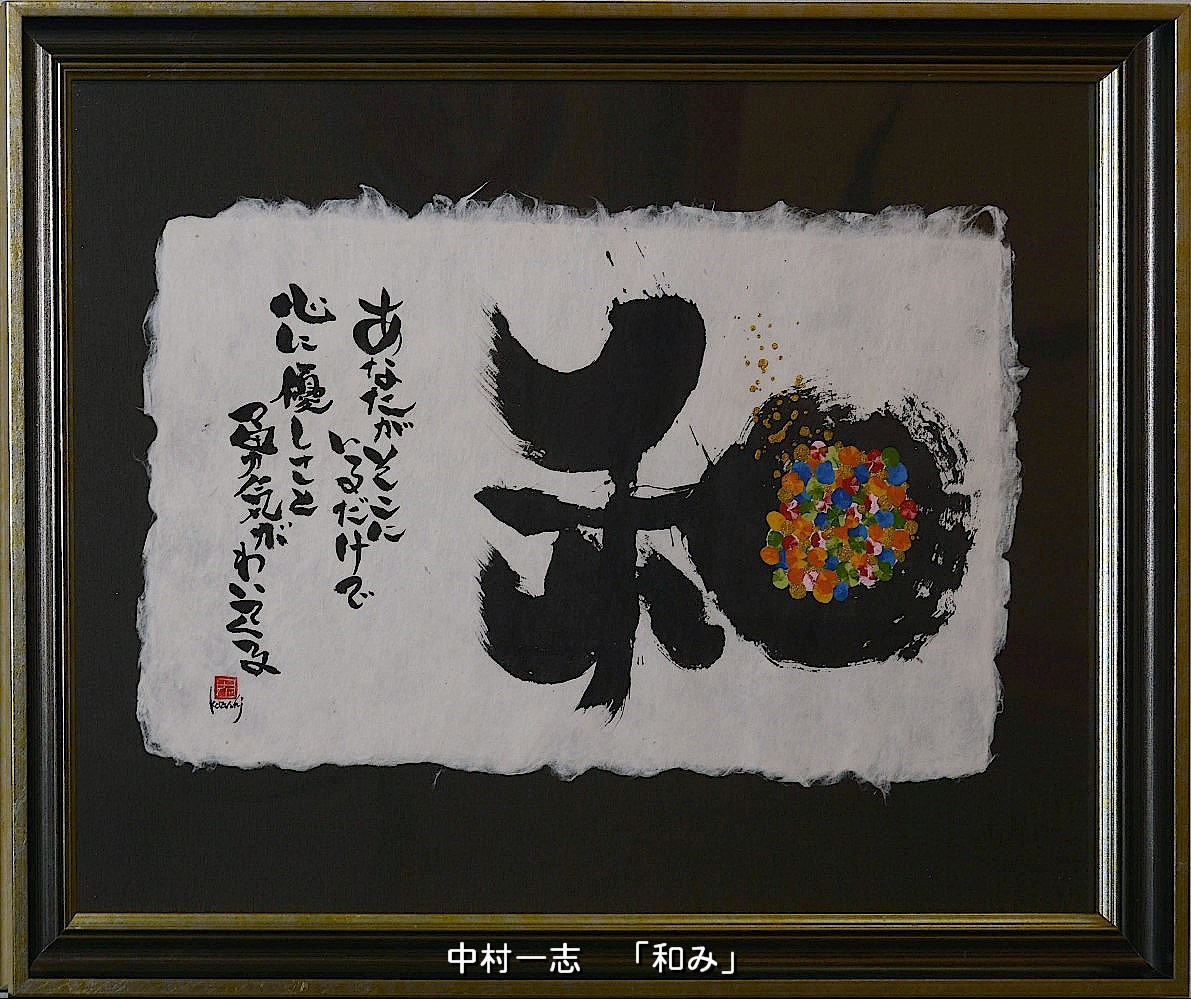 和
あなたがそこに
いるだけで
心に優しさと
勇気が
わいてくる
Kazushi
中村一志 「和み」